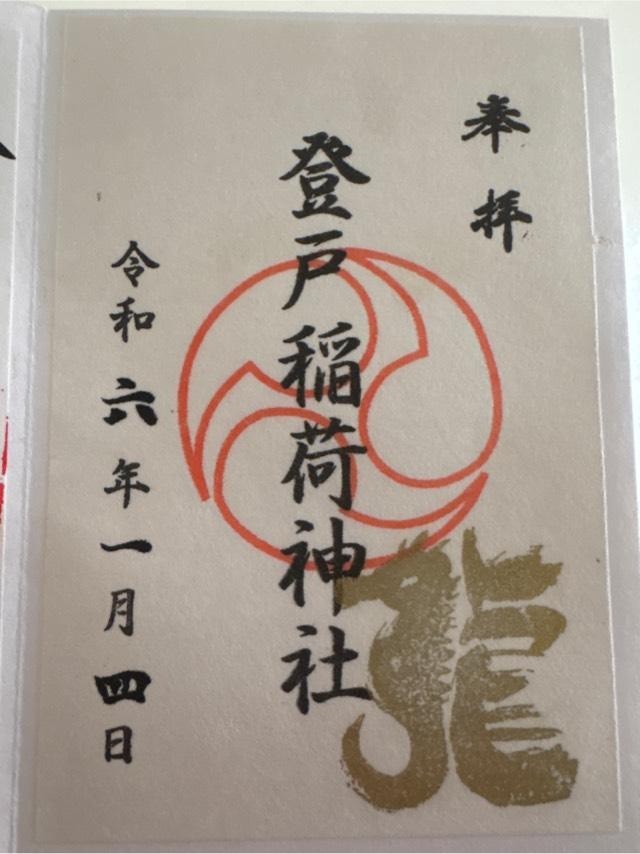 奉拝
登戸稲荷神社
龍
令和六年一月四日